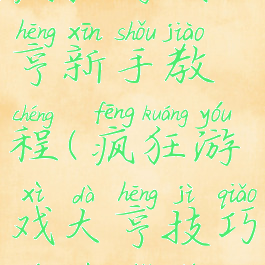 hēng xīn shǒu jiào
亨新手教
chéng fēng kuáng yóu
程(疯狂游
xì dà hēng jì qiǎo
戏大亨技巧